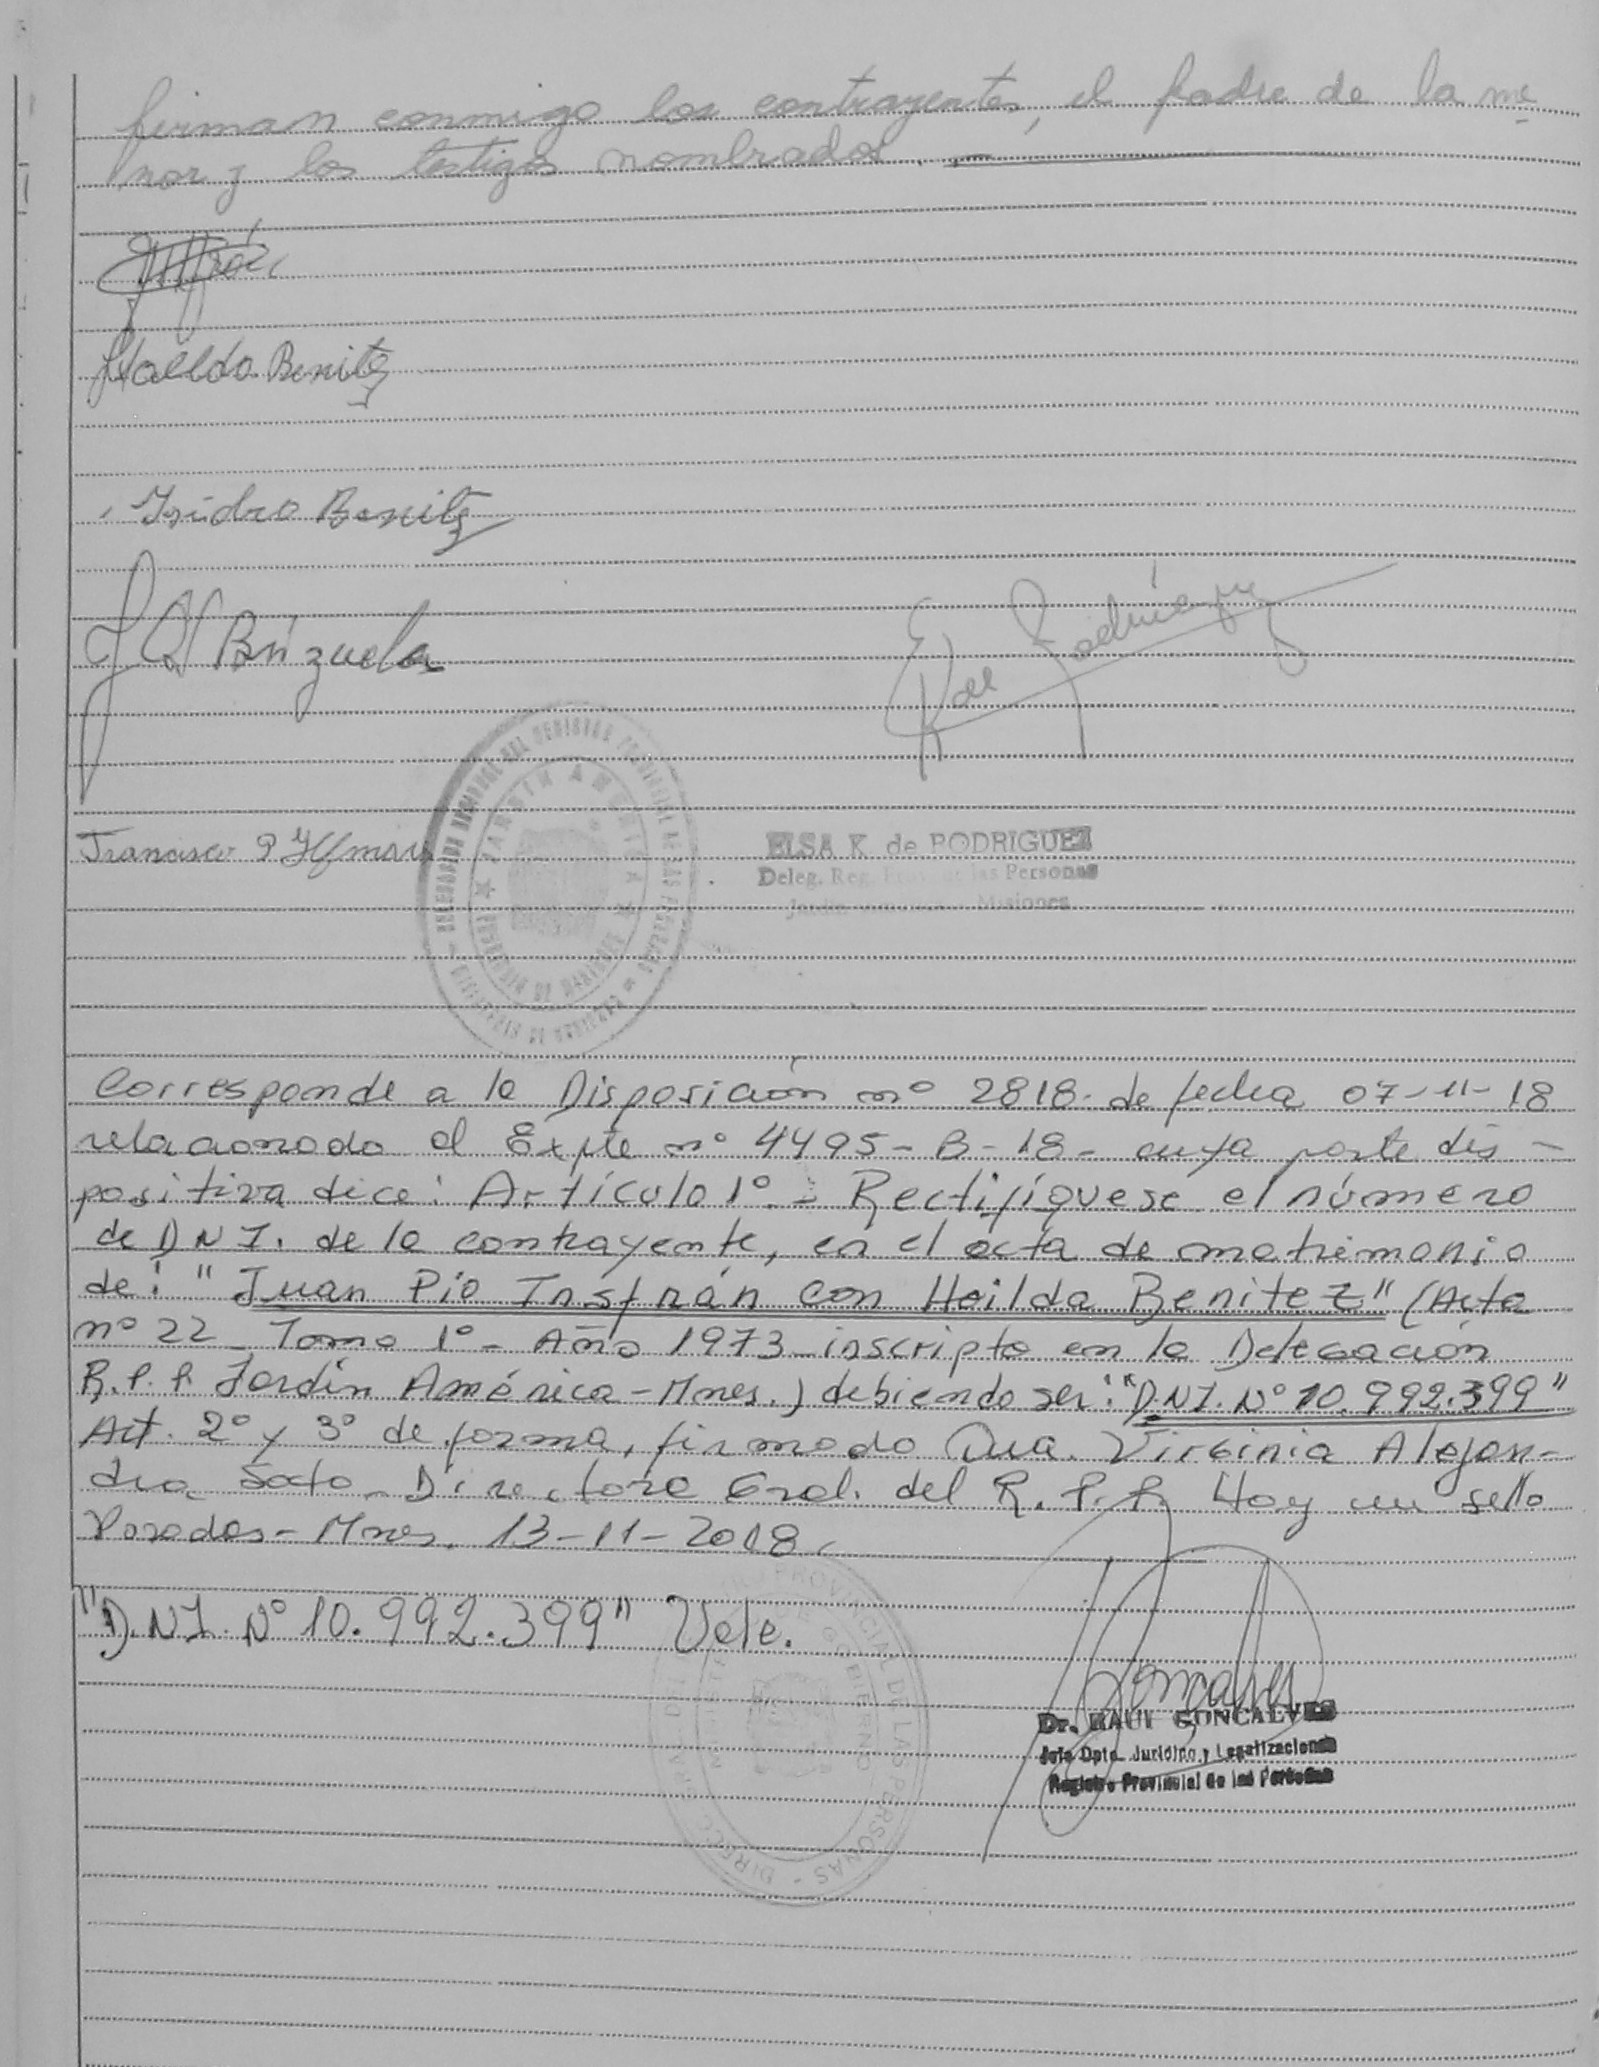 firman conmigo los contrayentes, el padre de la me
nor y los testigos nombrados.
Haellda Benitez
Isidro Benitez
Brizuela
Rodríguez
Francisco
JARDIN AMERICA
ELSA K. de RODRIGUEZ
Deleg. Reg. Prov. de las Personas
Jardín América - Misiones
Corresponde a la Disposición nº 2818 - de fecha 07-11-18
relacionado al Expte nº 4495 - B - 18 - cuya parte dis -
positiva dice: Artículo 1º - Rectifíquese el número
de D N I. de la contrayente, en el acta de matrimonio
de: "Juan Pío Insfrán con Heilda Benitez" (Acta
nº 22 - Tomo 1º - Año 1973 - inscripta en la Delegación
R. P. P. Jardín América - Mnes.) debiendo ser: "D.N.I. Nº 10.992.399"
Art. 2º y 3º de forma, firmado Dra. Virginia Alejan-
dra Soto - Directora Gral. del R. P. P. Hay un sello
Posadas - Mnes. 13-11-2018.
"D.N.I. Nº 10.992.399" Vale.
Goncalves
Dr. RAUL GONCALVES
Jefe Dpto. Jurídico y Legalizaciones
Registro Provincial de las Personas
PROVINCIAL DE LAS PERSONAS